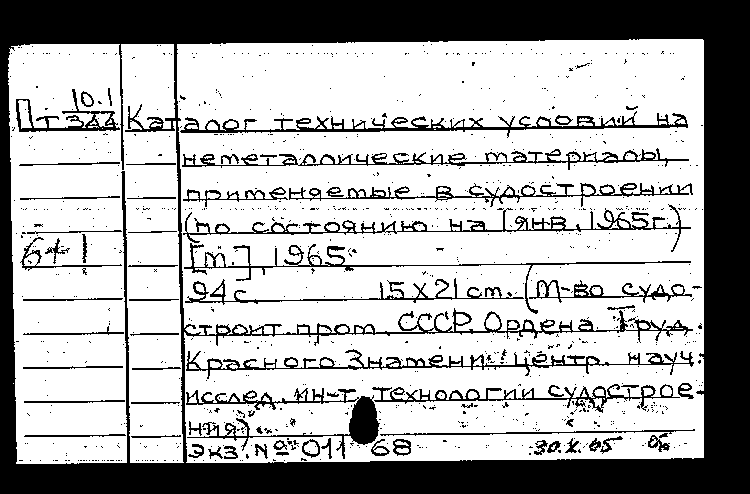 Пт 10.1/344 Каталог технических условий на
неметаллические материалы,
применяемые в судостроении
(по состоянию на 1 янв. 1965 г.)
6+1 [т.], 1965.
94 с. 15 X 21 cm. (М-во судо-
строит. пром. СССР. Ордена Труд.
Красного Знамени центр. науч.
исслед. ин-т технологии судострое-
ния)
Экз. № 011 68 30.X.05